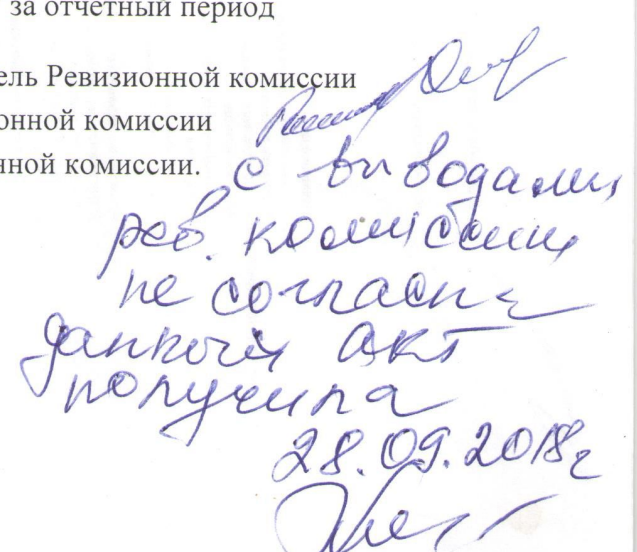 за отчетный период
ель Ревизионной комиссии
онной комиссии
нной комиссии.
с выводами
рев. комиссии
не согласна
данный акт
получила
28.09.2018г